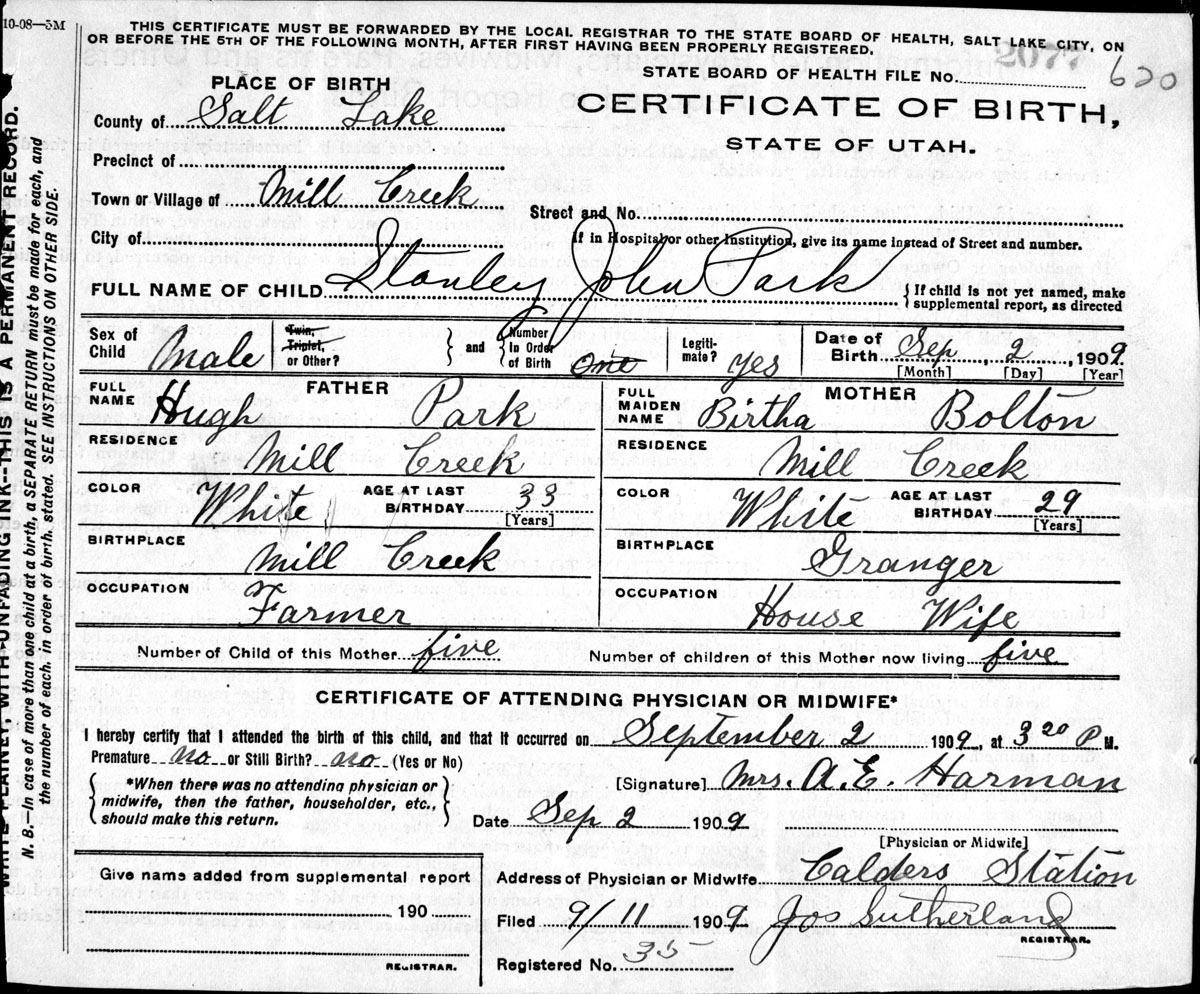 10-08—5M
THIS CERTIFICATE MUST BE FORWARDED BY THE LOCAL REGISTRAR TO THE STATE BOARD OF HEALTH, SALT LAKE CITY, ON
OR BEFORE THE 5TH OF THE FOLLOWING MONTH, AFTER FIRST HAVING BEEN PROPERLY REGISTERED.
2077
STATE BOARD OF HEALTH FILE No. 620
PLACE OF BIRTH
CERTIFICATE OF BIRTH,
STATE OF UTAH.
County of Salt Lake
Precinct of
Town or Village of Mill Creek
Street and No.
City of
If in Hospital or other Institution, give its name instead of Street and number.
FULL NAME OF CHILD Stanley John Park
{ If child is not yet named, make
supplemental report, as directed
Sex of Child Male
Twin, Triplet, or Other? } and { Number In Order of Birth One
Legitimate? Yes
Date of Birth Sep 2, 1909
[Month] [Day] [Year]
FATHER
FULL NAME Hugh Park
MOTHER
FULL MAIDEN NAME Birtha Bolton
RESIDENCE Mill Creek
RESIDENCE Mill Creek
COLOR White AGE AT LAST BIRTHDAY 33 [Years]
COLOR White AGE AT LAST BIRTHDAY 29 [Years]
BIRTHPLACE Mill Creek
BIRTHPLACE Granger
OCCUPATION Farmer
OCCUPATION House Wife
Number of Child of this Mother five
Number of children of this Mother now living five
CERTIFICATE OF ATTENDING PHYSICIAN OR MIDWIFE*
I hereby certify that I attended the birth of this child, and that it occurred on September 2 1909, at 3 20 P M.
Premature no or Still Birth? no (Yes or No)
{ *When there was no attending physician or
midwife, then the father, householder, etc.,
should make this return. }
[Signature] Mrs. A. E. Harman
Date Sep 2 1909
[Physician or Midwife]
Give name added from supplemental report
190
REGISTRAR.
Address of Physician or Midwife Calders Station
Filed 9/11 1909 Jos Sutherland
REGISTRAR.
Registered No. 35
WRITE PLAINLY, WITH UNFADING INK--THIS IS A PERMANENT RECORD.
N. B.—In case of more than one child at a birth, a SEPARATE RETURN must be made for each, and
the number of each, in order of birth, stated. SEE INSTRUCTIONS ON OTHER SIDE.